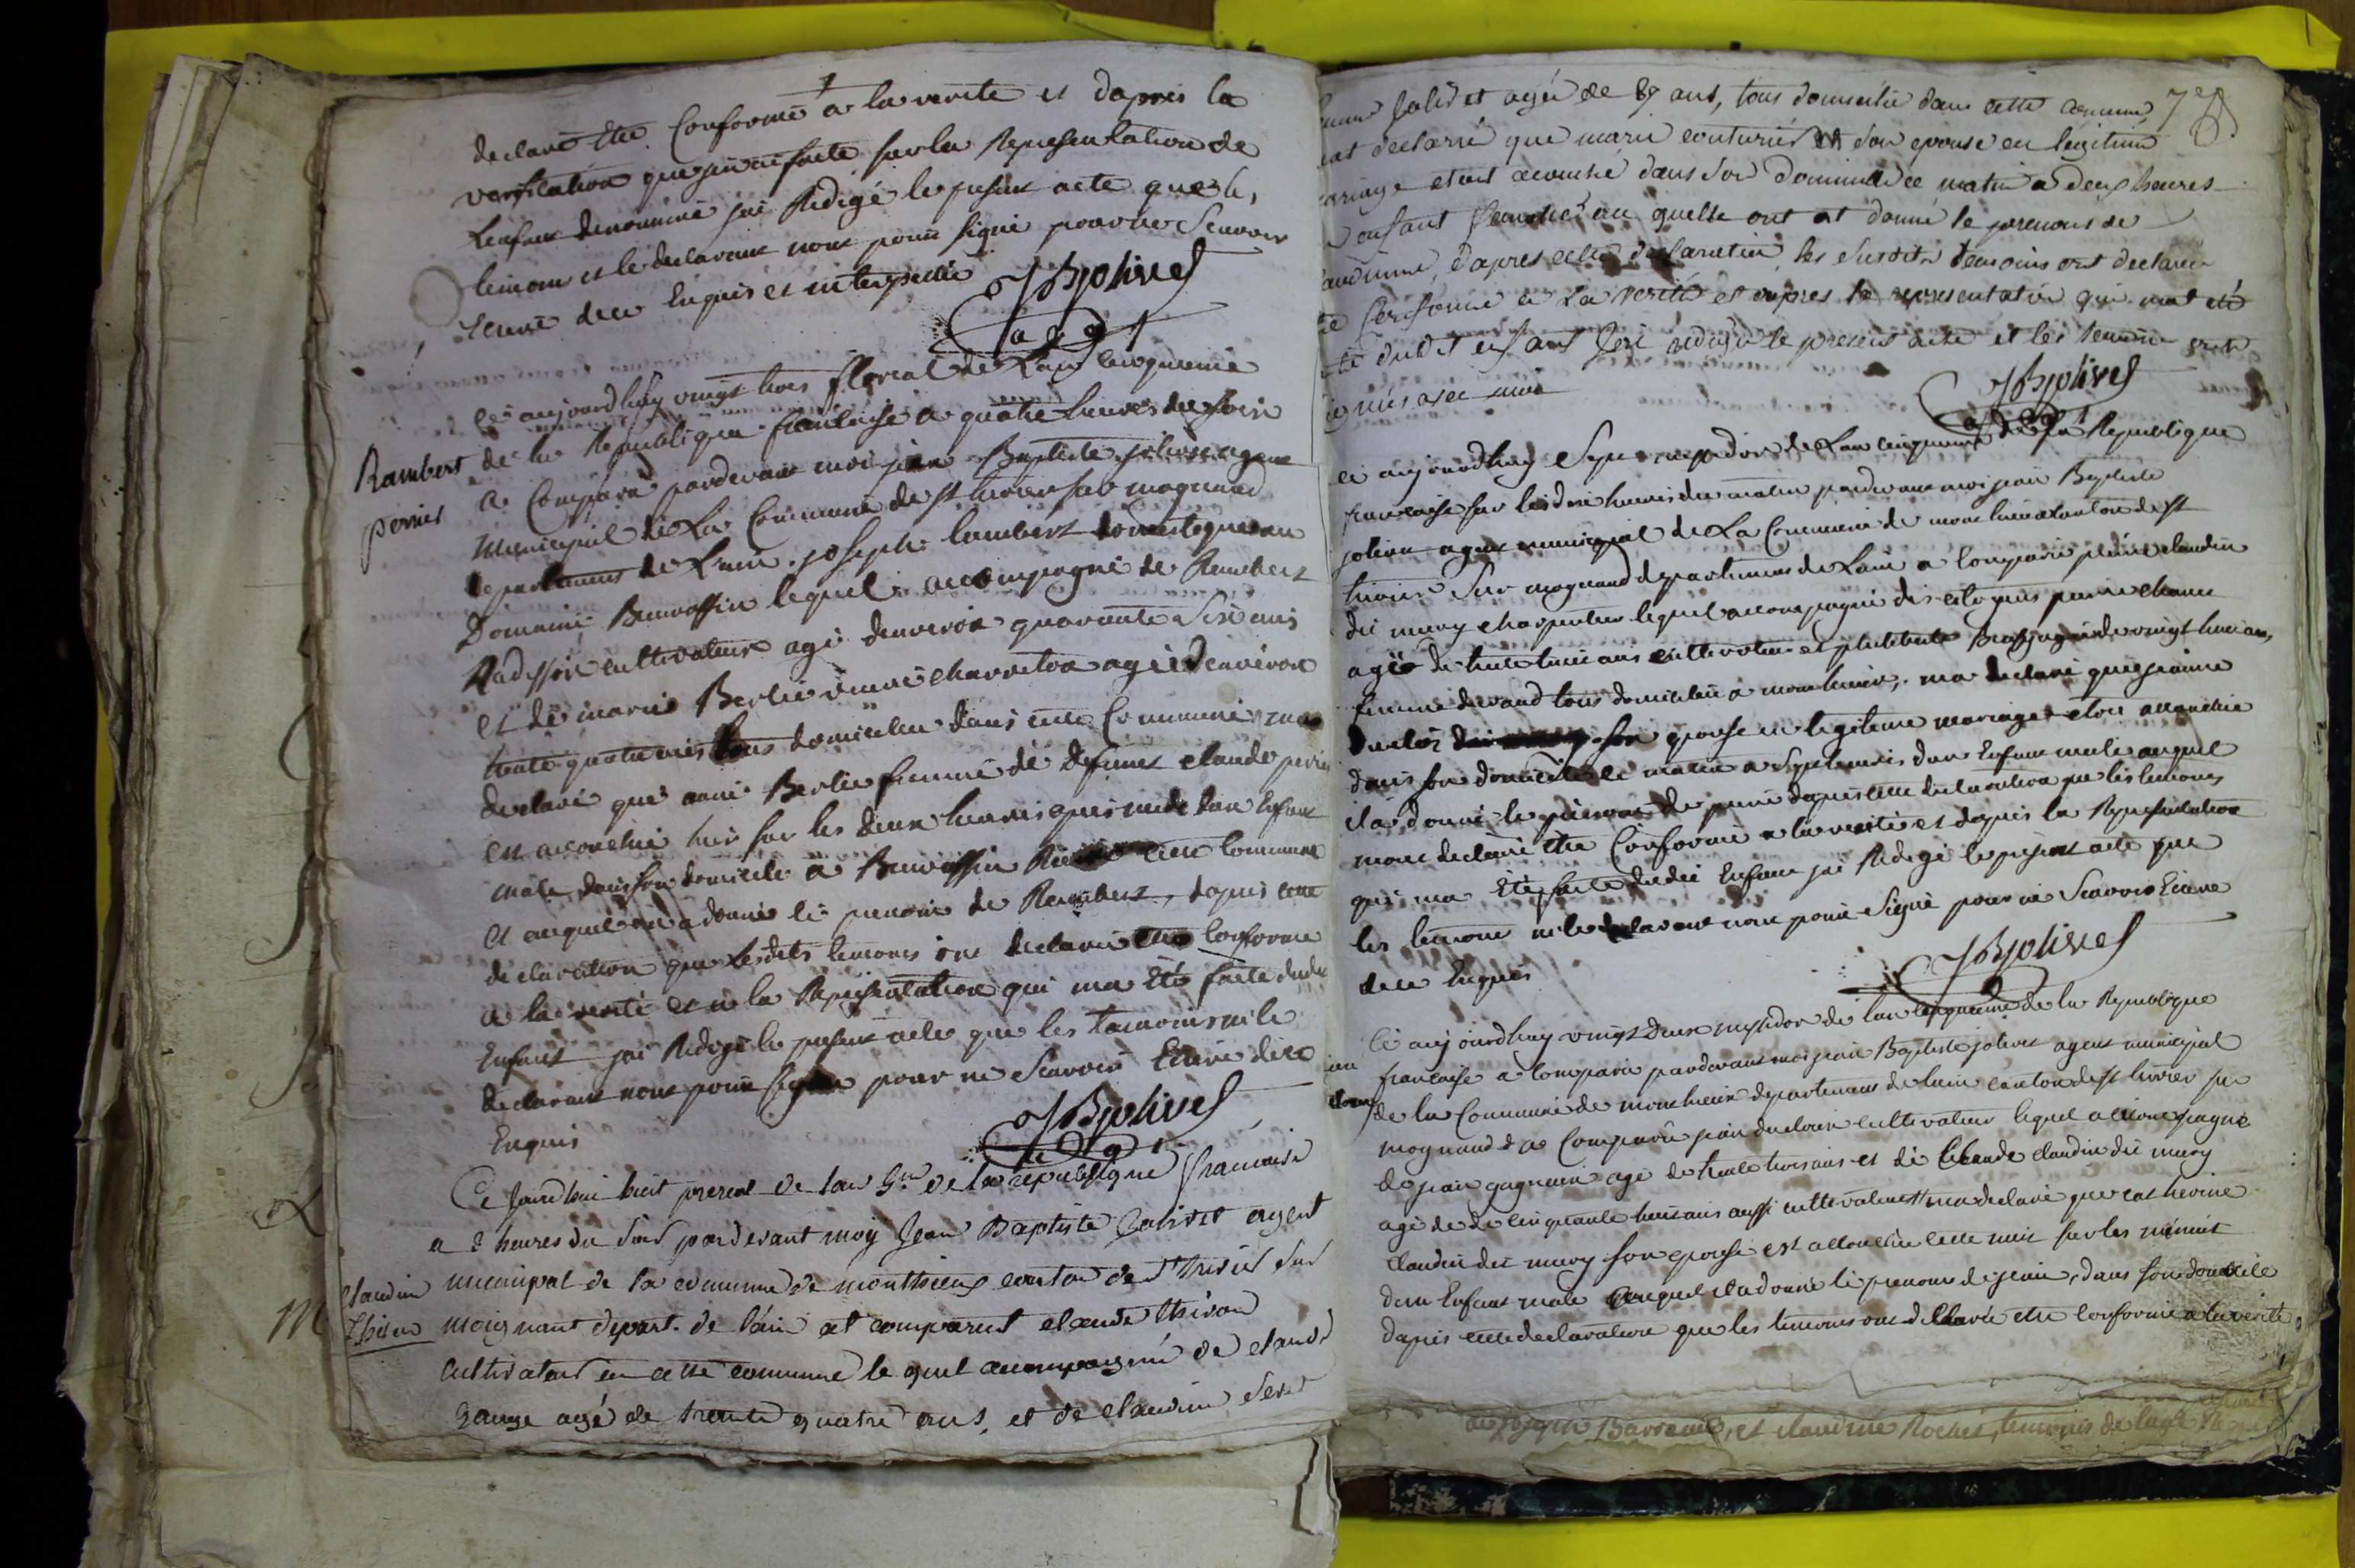 declaré Etre Conforme a la verité et dapres la
verification que jen ai faite sur la Representation de
Lenfant denommé jai Redigé le present acte que les
temoins et le declarant nont point signé pour ne Scavoir
Ecrire de ce Enquis et interpellé JBjolivet
agt
Rambert
perrier
ce aujourdhuy vingt trois floreal de Lan cinquieme
de la Republique francaise a quatre heures du soir
a Comparu pardevant moi jean Baptiste jolivet agent
Municipal de La Commune de st trivier sur mognand
departement de Lain joseph lambert domestique au
Domaine Beuvassin lequel accompagné de Rambert
cultivateur agé denviron quarante Six ans
et de marie Berlié veuve charreton agée denviron
trente quatre ans tous domiciliés dans cette Commune ma
declaré que anne Berlie femme de defunt claude perrier
est accouchée hier sur les deux heures apres midi dun Enfant
male dans son domicile a Beuvassin cette commune
et auquel on a donné le prenom de Rambert, dapres cette
declaration que Lesdits temoins ont declaré etre Conforme
a la verité et a la Representation qui ma Eté faite dudit
Enfant jai Redigé le present acte que les temoins ni le
declarant nont point signé pour ne Scavoir Ecrire de ce
Enquis JBjolivet
agt
Ce jourdhui huit prereal de lan 5me de la republique francaise
a 2 heures du soir pardevant moy Jean Baptiste Jolivet agent
claudine municipal de la commune de monthieux canton de st Trivier sur
Thivon moignant depart. de l'ain at comparut claude thivon
M
cultivateur en cette commune le quel accompagné de claude
agé de trente quatre ans, et de claudine
78
Jolivet agée de 87 ans, tous domicilié dans cette commune
declarré que marie couturier son epouse en legitime
mariage etait acouché dans son domicile ce matin a deux heures
enfant femelle au quelle ont at donné le prenoms de
claudinne, dapres cette declaration, les susdits temoins ont declaré
conforme a La verité et dapres la representation qui mat eté
dudit enfant Jai redigé le present acte et les temoins
signés avec moi JBjolivet
agt
ce aujourdhuy Sept messidor de Lan cinquieme de la Republique
francaise sur les dix heures du matin pardevant moi jean Baptiste
jolivet agent municipal de La Commune de monthieux canton de st
trivier Sur mognand departement de Lain a Comparu pierre claudin
dit muery charpentier lequel accompagné des citoyens pierre
agé de trente huit ans cultivateur et philiberte agée de vingt huit ans,
femme durand tous domiciliés a monthieux, ma declaré que jeanne
duclos son epouse en legitime mariage etoit accouchée
dans son domicile ce matin a Sept heures dun Enfant male auquel
il a donné le prenom de pierre dapres cette declaration que les temoins
mont declaré etre Conforme a la verité et dapres la Representation
qui ma Eté faite dudit Enfant jai Redigé le present acte que
les temoins ni le declarant nont point Signé pour ne Scavoir Ecrire
de ce Enquis JBjolivet
ce aujourdhuy vingt Deux messidor de lan cinquieme de la Republique
francaise a comparu pardevant moi jean Baptiste jolivet agent municipal
de la Commune de monthieux departement de lain canton de st trivier sur
mognand a Comparu jean cultivateur lequel accompagné
de jean gagneux agé de trente trois ans et de Claude claudin dit muery
agé de de cinquante huit ans aussi cultivateur ma declaré que catherine
claudin dit muery son epouse est accouchée cette nuit sur les minuit
dun Enfant male auquel il a donné le prenom de jean, dans son domicile
dapres cette declaration que les temoins ont declaré etre conforme a la verité,
et claudine Rochet, temoins de